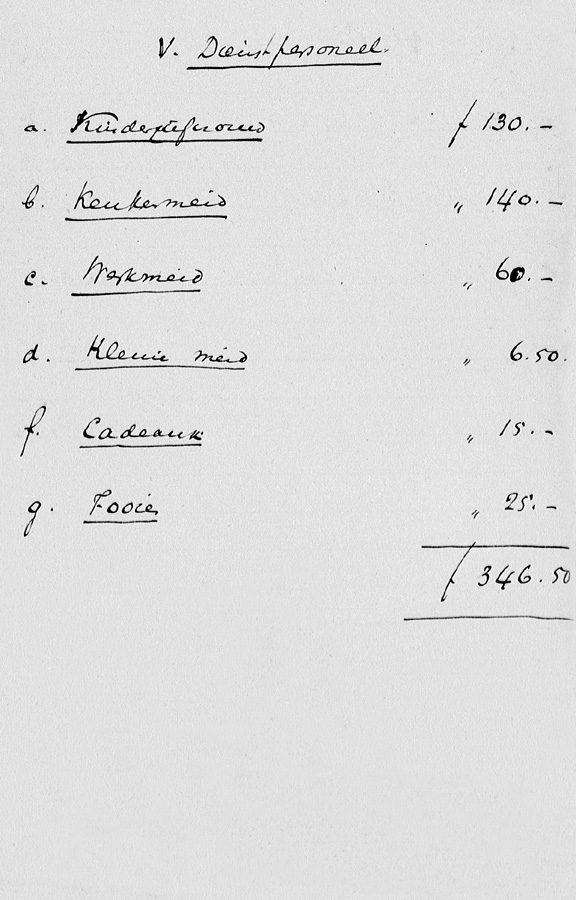 V. Dienstpersoneel.
a. Kinderjuffrouw f 130.-
b. Keukenmeid " 140.-
c. Werkmeid " 60.-
d. Kleine meid " 6.50.
f. Cadeaux " 15.-
g. Fooien " 25.-
f 346.50